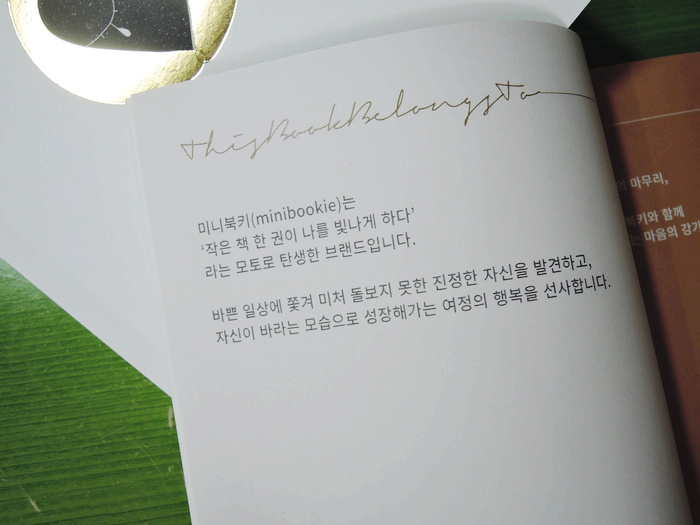 This Book Belongs To
미니북키(minibookie)는
‘작은 책 한 권이 나를 빛나게 하다’
라는 모토로 탄생한 브랜드입니다.
바쁜 일상에 쫓겨 미처 돌보지 못한 진정한 자신을 발견하고,
자신이 바라는 모습으로 성장해가는 여정의 행복을 선사합니다.
마무리,
북키와 함께
는 마음의 강가